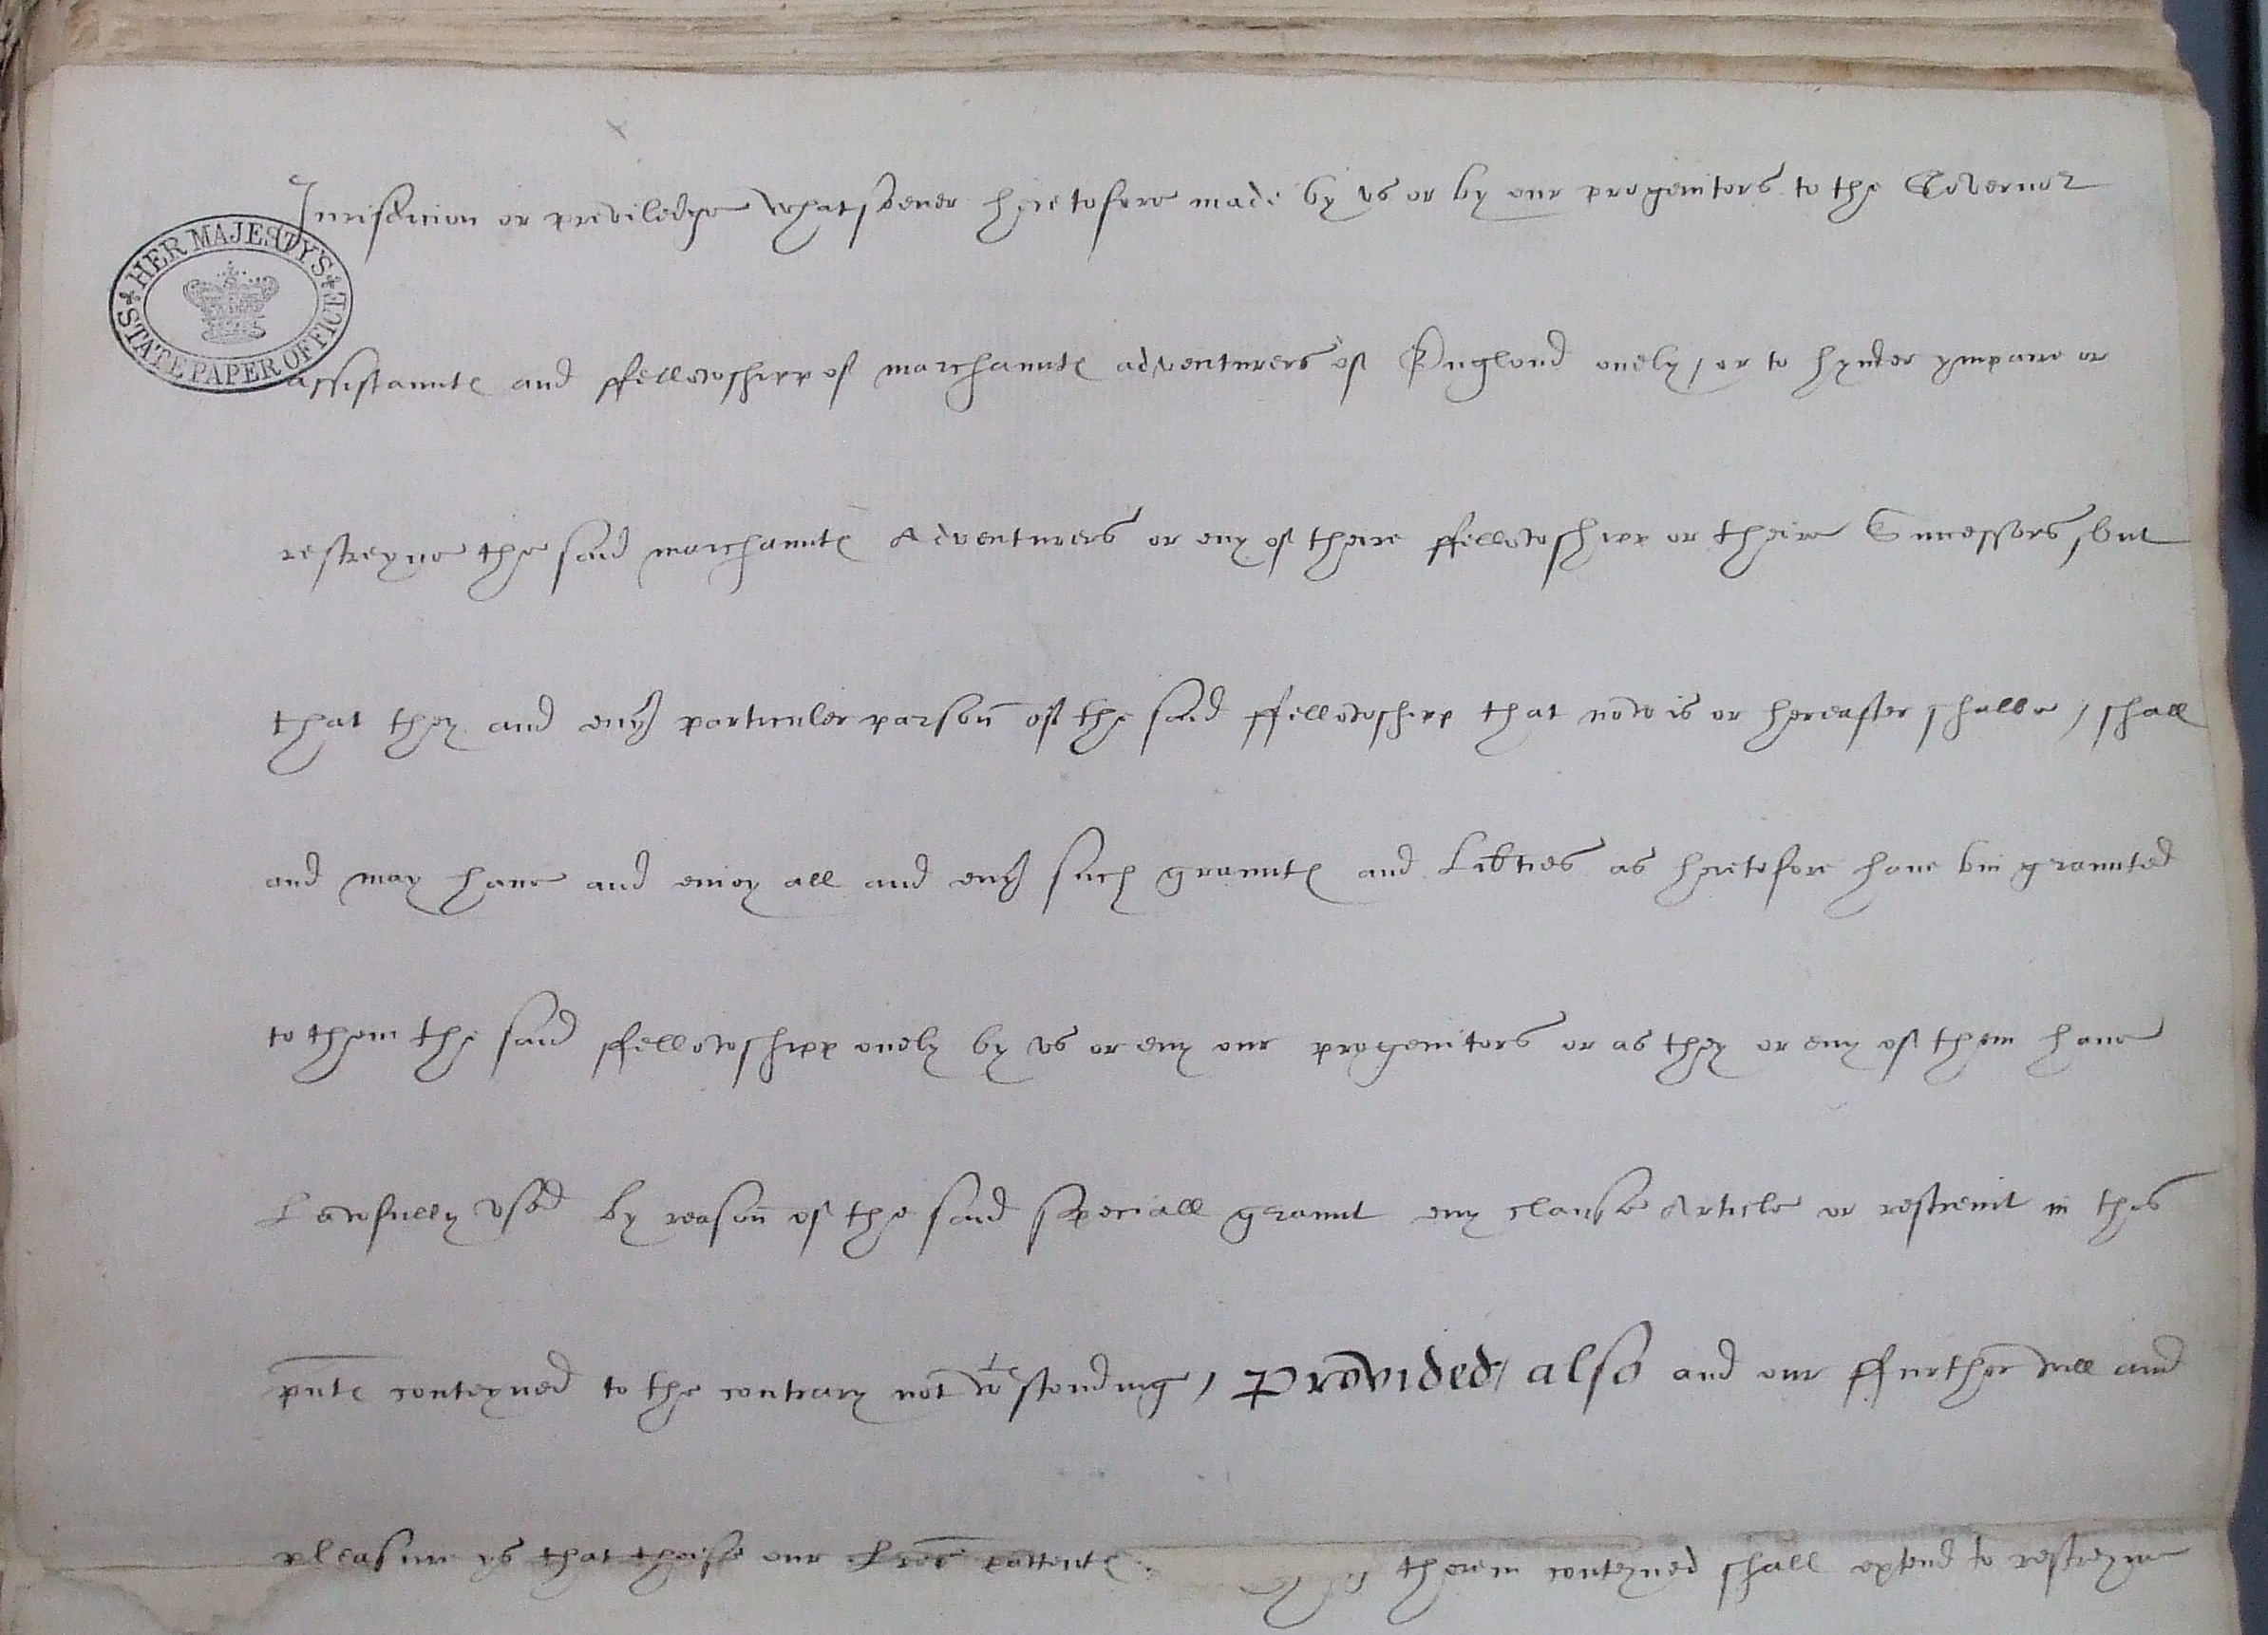 Jurisdiccion or priviledge whatsoever heretofore made by vs or by our progenitors to the Governor
HER MAJESTY'S STATE PAPER OFFICE
assistaunte and ffellowshipp of marchaunte adventurers of Englond onely / or to hynder ympaire or
restreyne the said marchaunte Adventurers or eny of theire ffellowshipp or theire Successors, but
that they and euy particuler parson of the said ffellowshipp that now is or hereafter shalbe / shall
and may haue and enioy all and euy such graunte and Libties as heretofore haue bin graunted
to them the said ffellowshipp onely by vs or eny our progenitors or as they or eny of them haue
Lawfully vsed by reason of the said speciall graunt eny clause Article or restreint in this
pnte conteyned to the contrary not wtstonding / Provided / also and our ffurther will and
pleasure ys that theise our lres pattente therein conteyned shall extend to restreyne